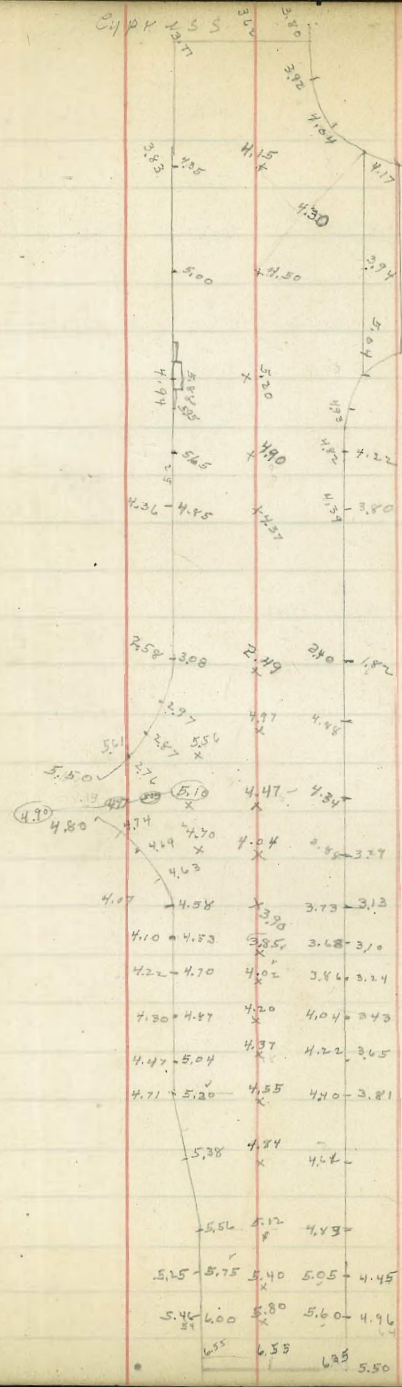 Cypress
3.77 3.62 3.80
3.92
4.04
3.83 4.35 4.15 4.17
4.30
5.00 4.50 3.94
5.04
4.94 5.88 5.95 5.20
4.93
5.65 4.90 4.82 4.22
4.36 4.85 4.37 4.39 3.80
2.58 3.08 2.49 2.40 1.82
2.97 4.97 4.48
5.61 2.87 5.56
5.50 2.76
5.10 4.47 4.34
4.90
4.80 4.74
4.69 4.70 4.04 3.29
4.63
4.07 4.58 3.90 3.73 3.13
4.10 4.53 3.85 3.68 3.10
4.22 4.70 4.02 3.86 3.24
4.30 4.87 4.20 4.04 3.43
4.47 5.04 4.37 4.22 3.65
4.71 5.20 4.55 4.40 3.81
5.38 4.84 4.64
5.56 5.12 4.89
5.25 5.75 5.40 5.05 4.45
5.46 6.00 5.80 5.60 4.96
6.55 6.55 6.35 5.50